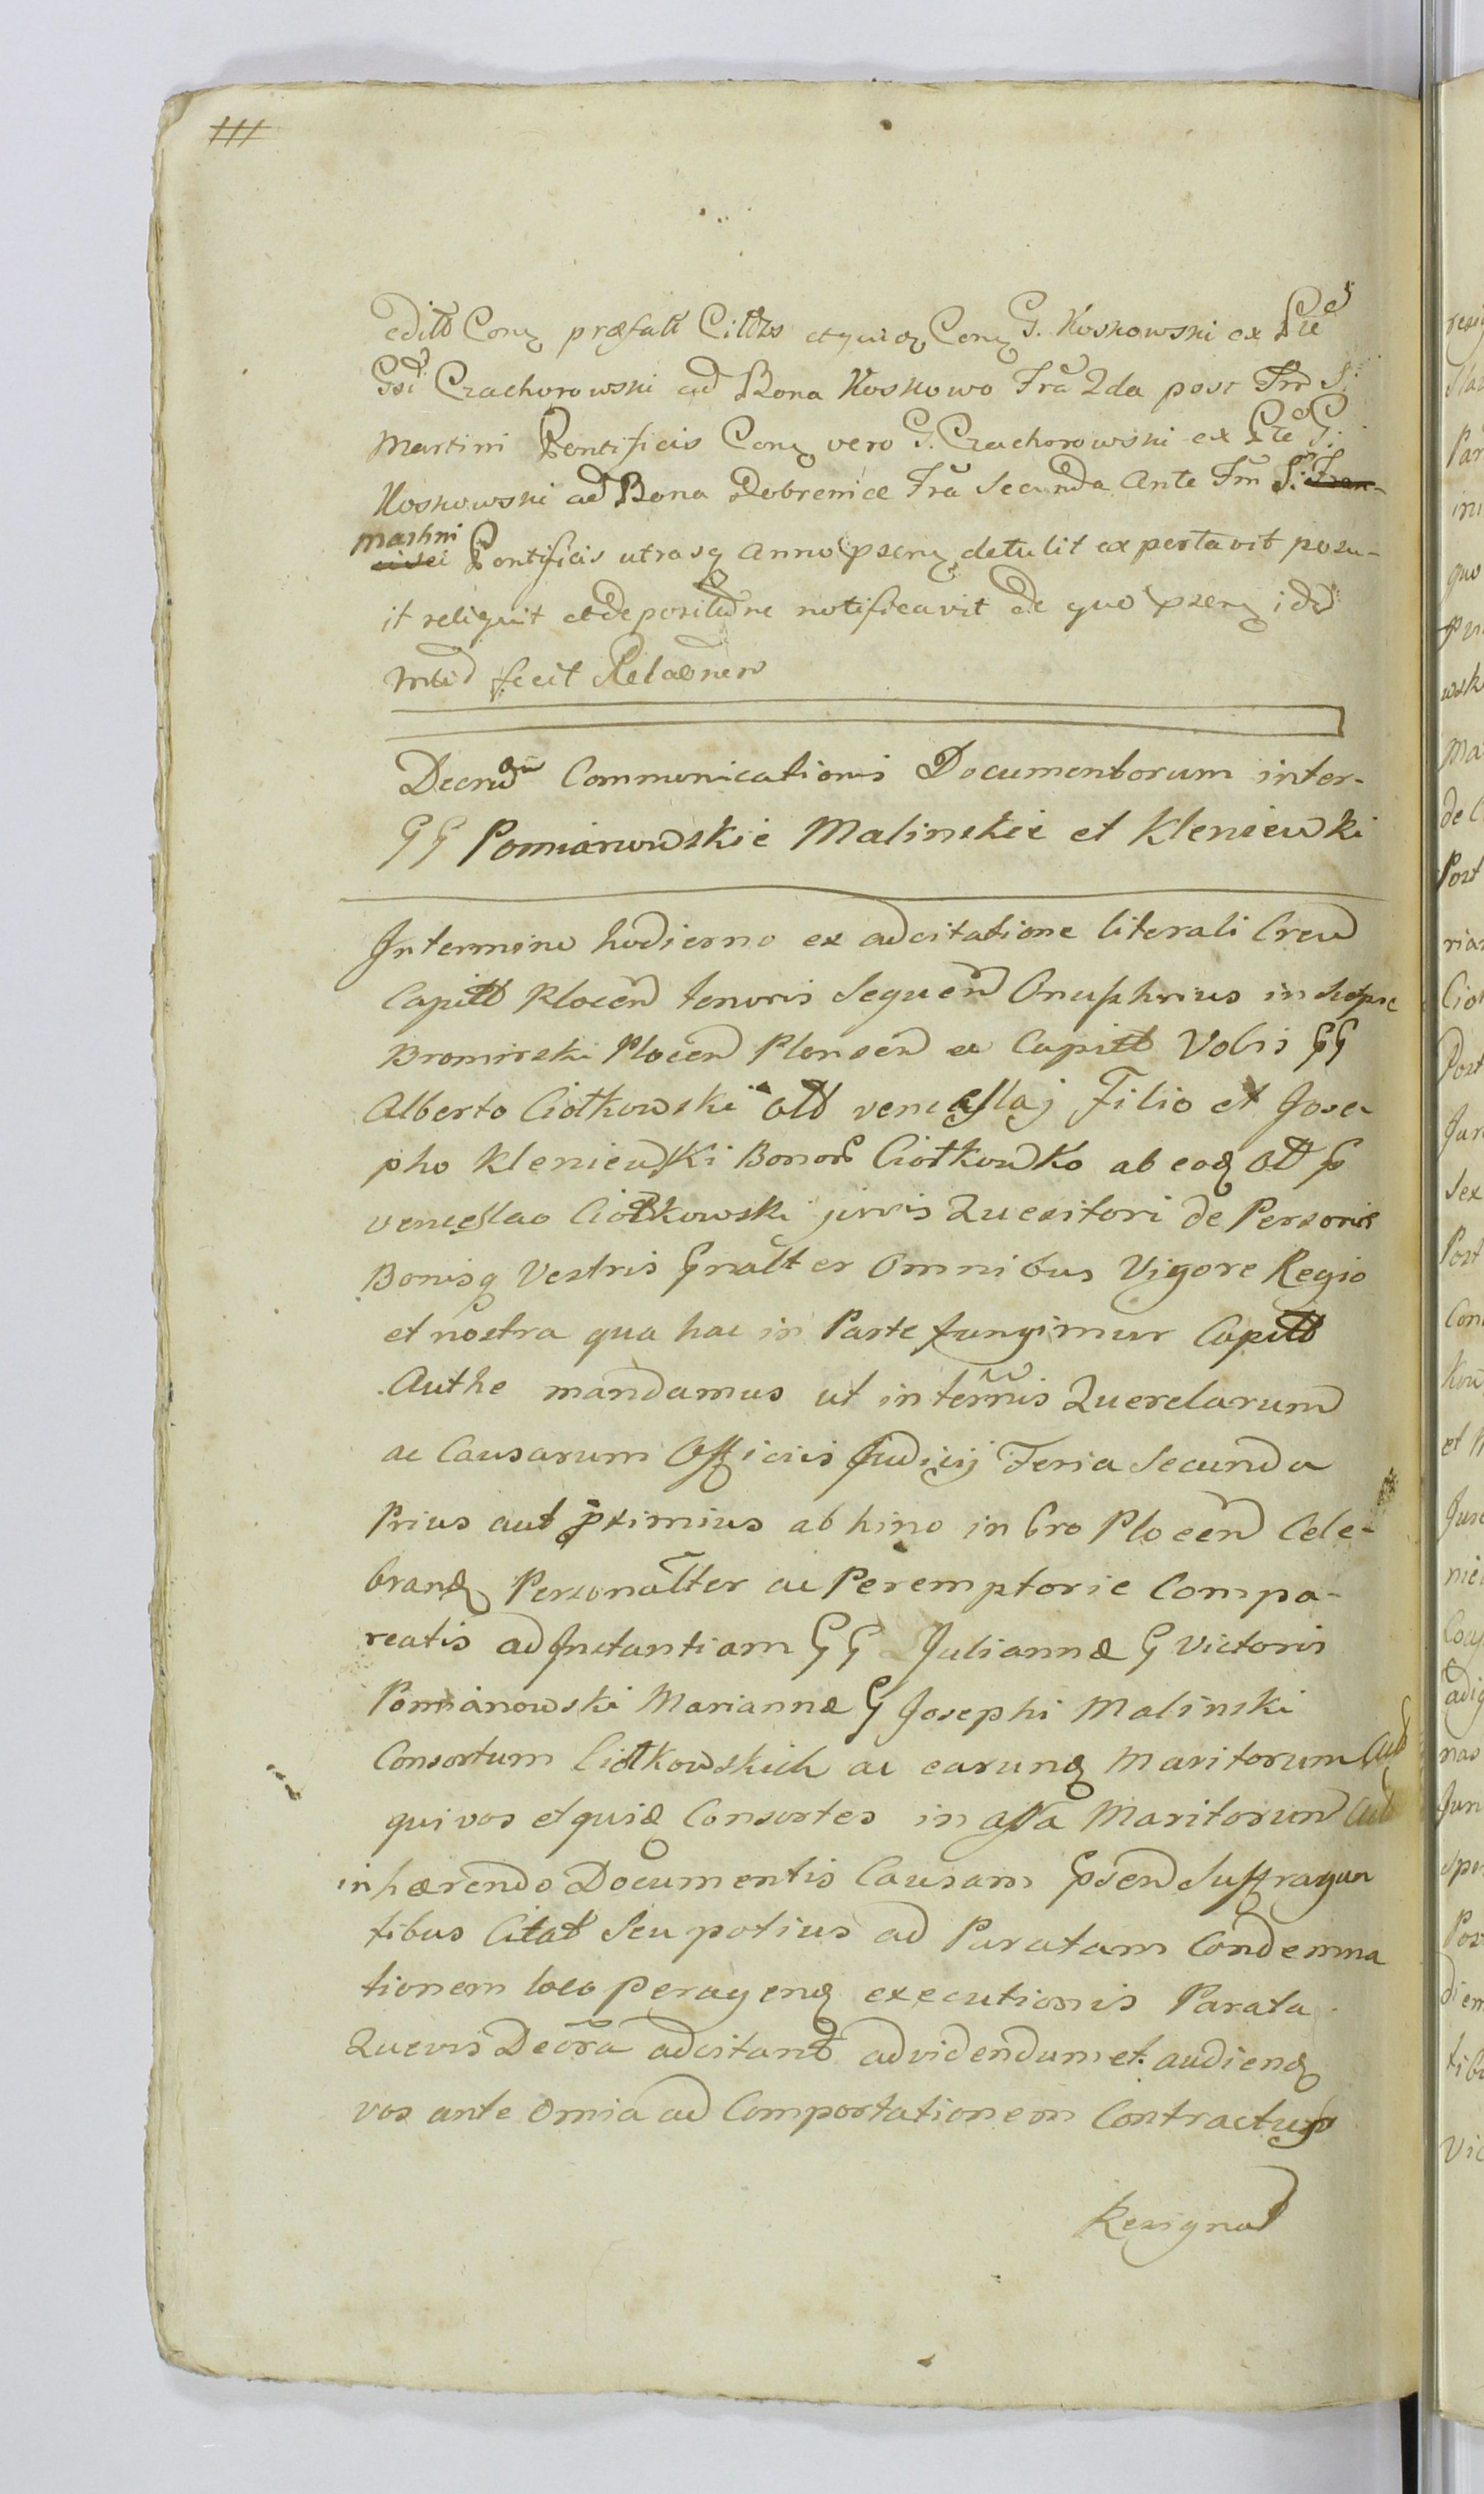 edilt Conq præfatt Citttes et quidq Conq G. Koskowski ex Pte
Gsi Czachorowski ad Bona Koskowo Fra 2da post Fm S:
Martini Pontificis Conq vero G. Czachorowski ex Pte G:
Koskowski ad Bona Dobrenice Fra Secunda Ante Fm S: Fran-
Martini cisci Pontificis utrasq Anno psenq detulit expertavit posu-
it reliquit et depositdne notificavit de quo psenq idd
Mtd fecit Relaonem
Decrtum Communicationis Documentorum inter-
GG Pomianowskie Malinskie et Kleniewski
In termino hodierno ex adcitatione literali Crend
Capittt Plocen tenoris Sequen Onuphrius in
Bromirski Plocen Plonsen et Capittt Vobis GG
Alberto Ciołkowski olt venceslaj Filio et Jose-
pho Kleniewski Bonor Ciołkowko ab eodq Olt G
venceslao Ciołkowski juris Quesitori de Personis
Bonisq Vestris Gnałter Omnibus Vigore Regio
et nostra qua hac in Parte fungimur Capittt
Authe mandamus ut in termis Querelarum
ac Causarum Officii Judicij Feria Secunda
Prius aut pximius ab hinc in Cro Plocen Cele-
brandq Personałter ac Peremptorie Compa-
reatis ad Instantiam GG Juliannæ G Victoris
Pomianowski Mariannæ G Josephi Malinski
Consortum Ciołkowskich ac earundq Maritorum Act
qui vos et quidq Consortes in assa Maritorum Act
inhærendo Documentis Causam psen Suffragan
tibus Citat Seu potius ad Paratam Condemna
tionem loco peragendq executionis Parata
Quevis Decra adcitant ad videndum et audiendq
vos ante Omia ad Comportationem Contractus
Resignat